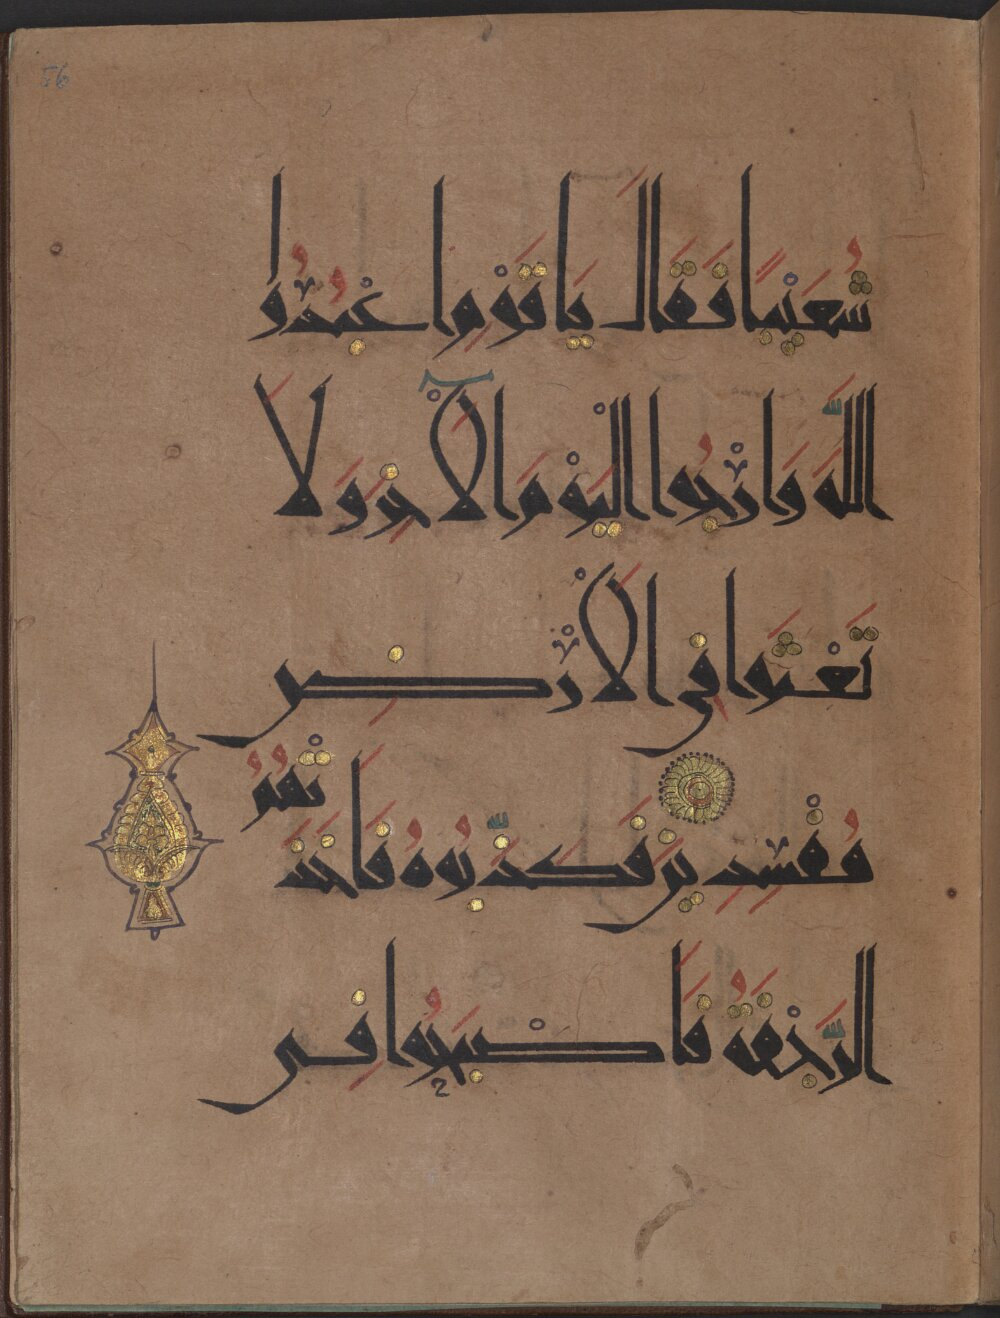 56
شُعَيْبًا فَقَالَ يَا قَوْمِ اعْبُدُوا
اللَّهَ وَارْجُوا الْيَوْمَ الْآخِرَ وَلَا
تَعْثَوْا فِي الْأَرْضِ
مُفْسِدِينَ فَكَذَّبُوهُ فَأَخَذَ
تْهُمُ
الرَّجْفَةُ فَأَصْبَحُوا فِي